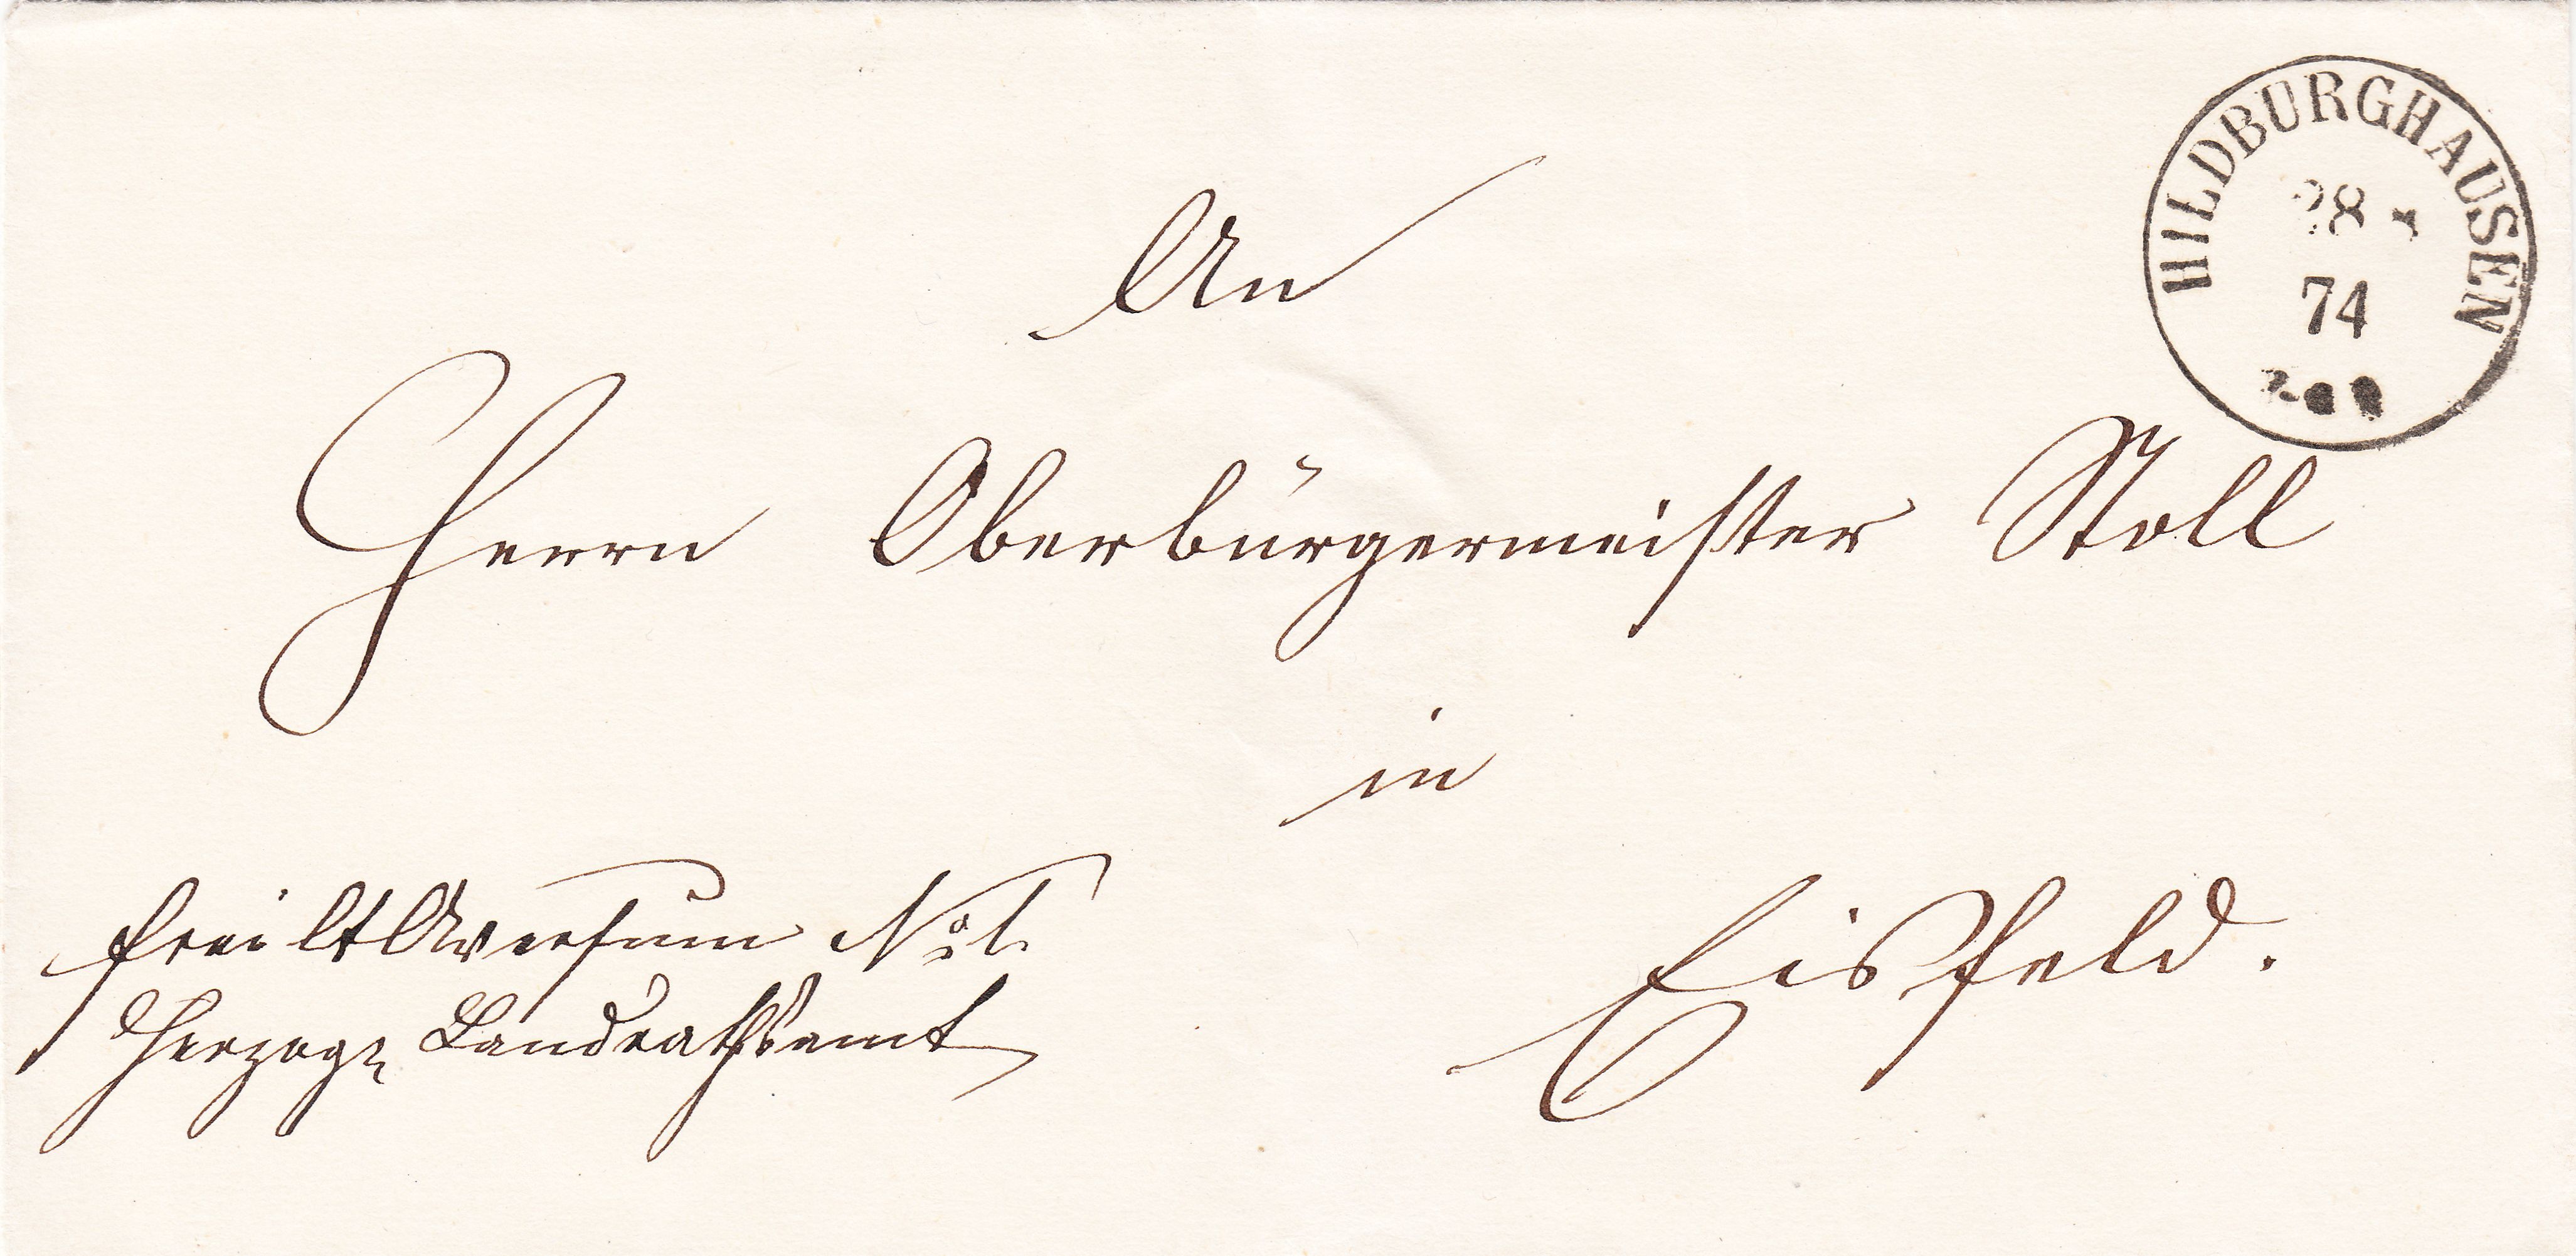 HILDBURGHAUSEN
28
74
An
Herrn Oberbürgermeister Stoll
in
Eisfeld.
frei lt Aversum No 1.
Herzogl. Landrathsamt